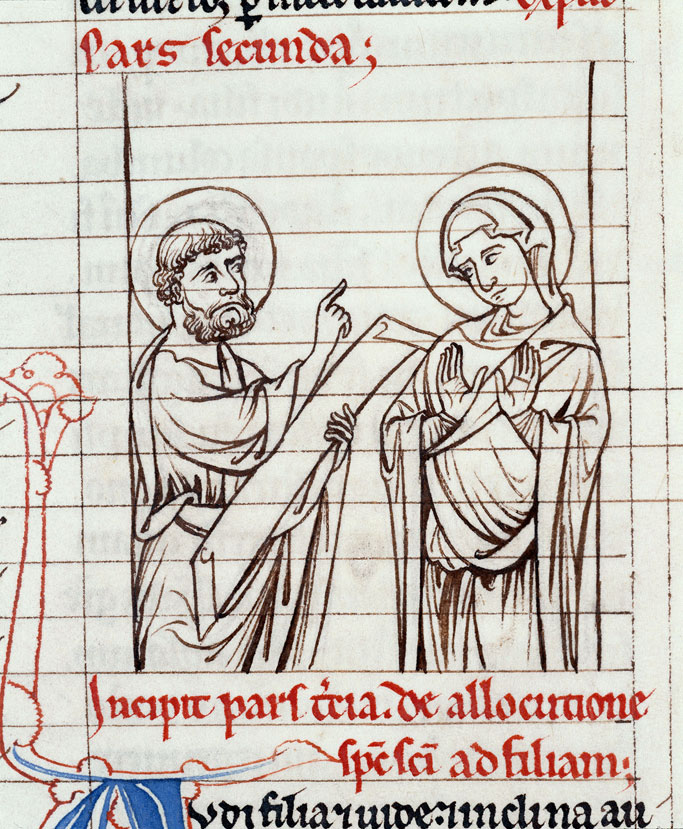 Pars secunda;
Incipit pars t̄cia. de allocutione
sp̄c sc̄i ad filiam;
Vdi filia ⁊ uide: ⁊ inclina au